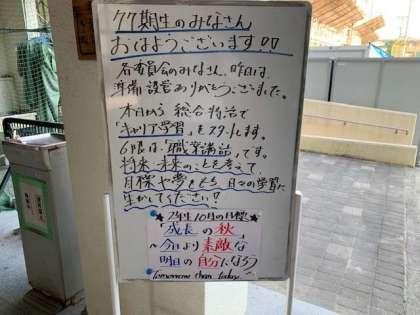 77期生のみなさん
おはようございます!!
各委員会のみなさん、昨日は、
準備・設営ありがとうございました。
本日から 総合的活で
"キャリア学習"をスタートします。
6限は「職業講話」です。
将来・未来のことを考えて、
目標や夢をもち 日々の学習に
生かしてください!
★2年生10月の目標★
「成長の秋」
~今日より素敵な
明日の自分になろう
tomorrow than today